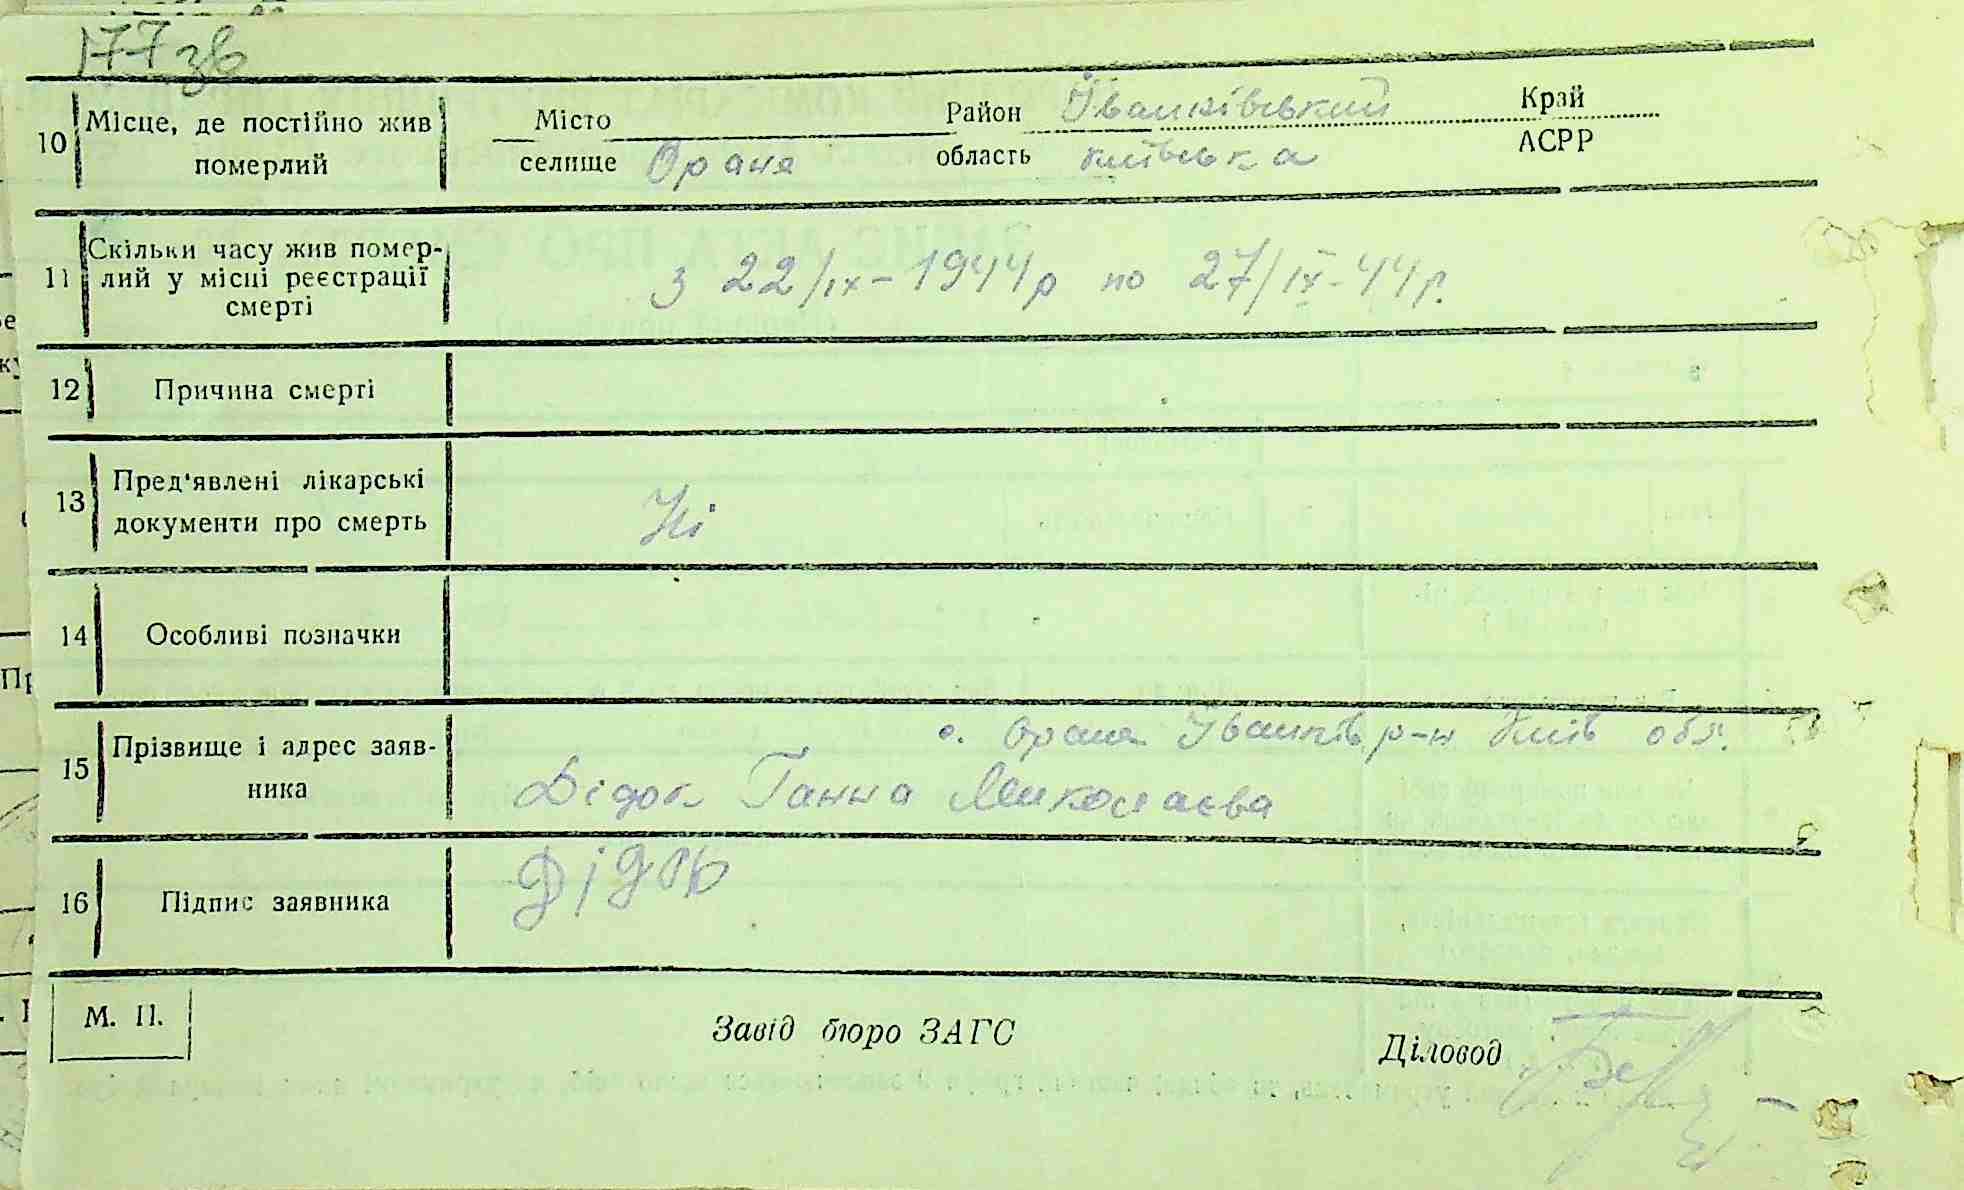 177 зв
10 Місце, де постійно жив померлий
Місто Район Іванківський Край
селище Оране область київська АСРР
11 Скільки часу жив помер-
лий у місці реєстрації
смерті
з 22/ІХ-1944р по 27/ІХ-44р.
12 Причина смерті
13 Пред'явлені лікарські
документи про смерть
Ні
14 Особливі позначки
15 Прізвище і адрес заяв-
ника
с. Оране Іванків р-н Київ обл.
Дідок Ганна Миколаєва
16 Підпис заявника
М. П.
Завід бюро ЗАГС
Діловод